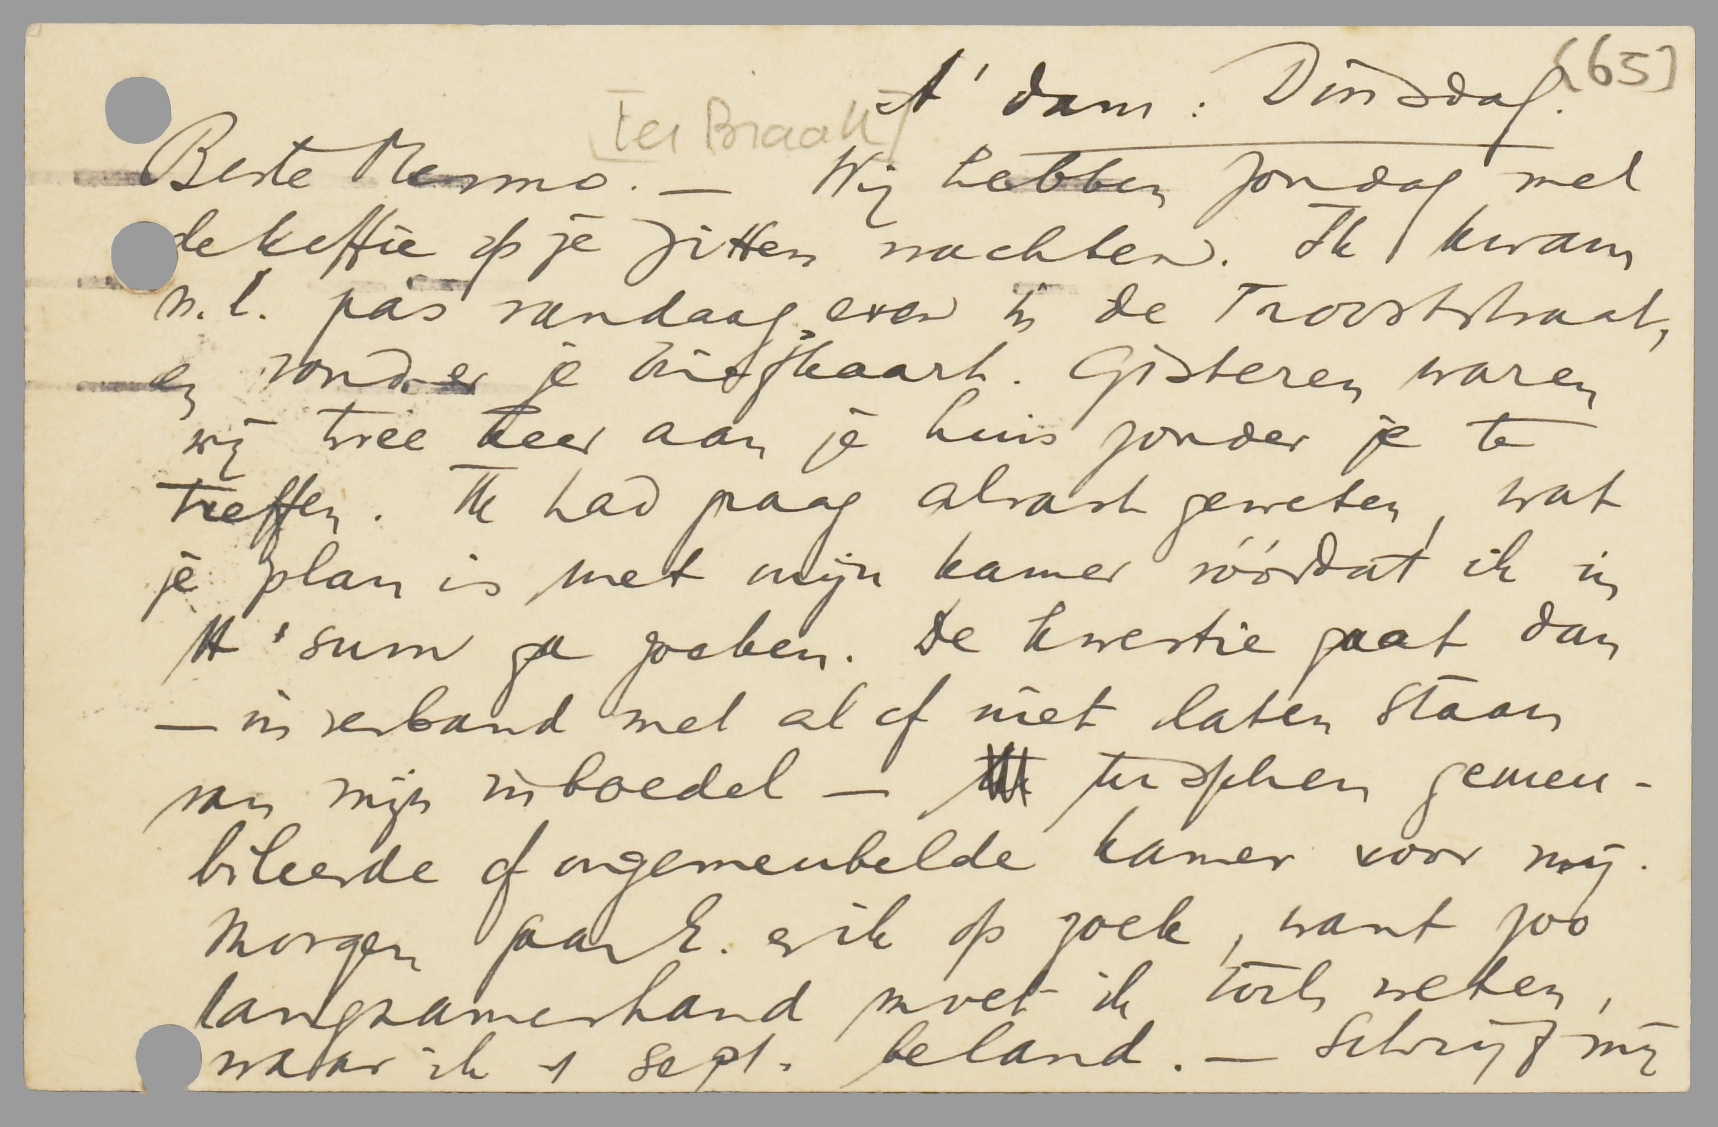 [65]
A'dam: Dinsdag.
[Ter Braak]
Beste Menno. — Wij hebben Zondag met
de koffie op je zitten wachten. Ik kwam
n.l. pas vandaag even in de Trooststraat,
en vond er je briefkaart. Gisteren waren
wij twee keer aan je huis zonder je te
treffen. Ik had graag alvast geweten, wat
je plan is met mijn kamer vóórdat ik in
H'sum ga zoeken. De kwestie gaat dan
— in verband met al of niet laten staan
van mijn inboedel — tusschen gemeu-
bileerde of ongemeubelde kamer voor mij.
Morgen gaan E. en ik op zoek, want zoo
langzamerhand moet ik toch weten,
waar ik 1 Sept. beland. — Schrijf mij